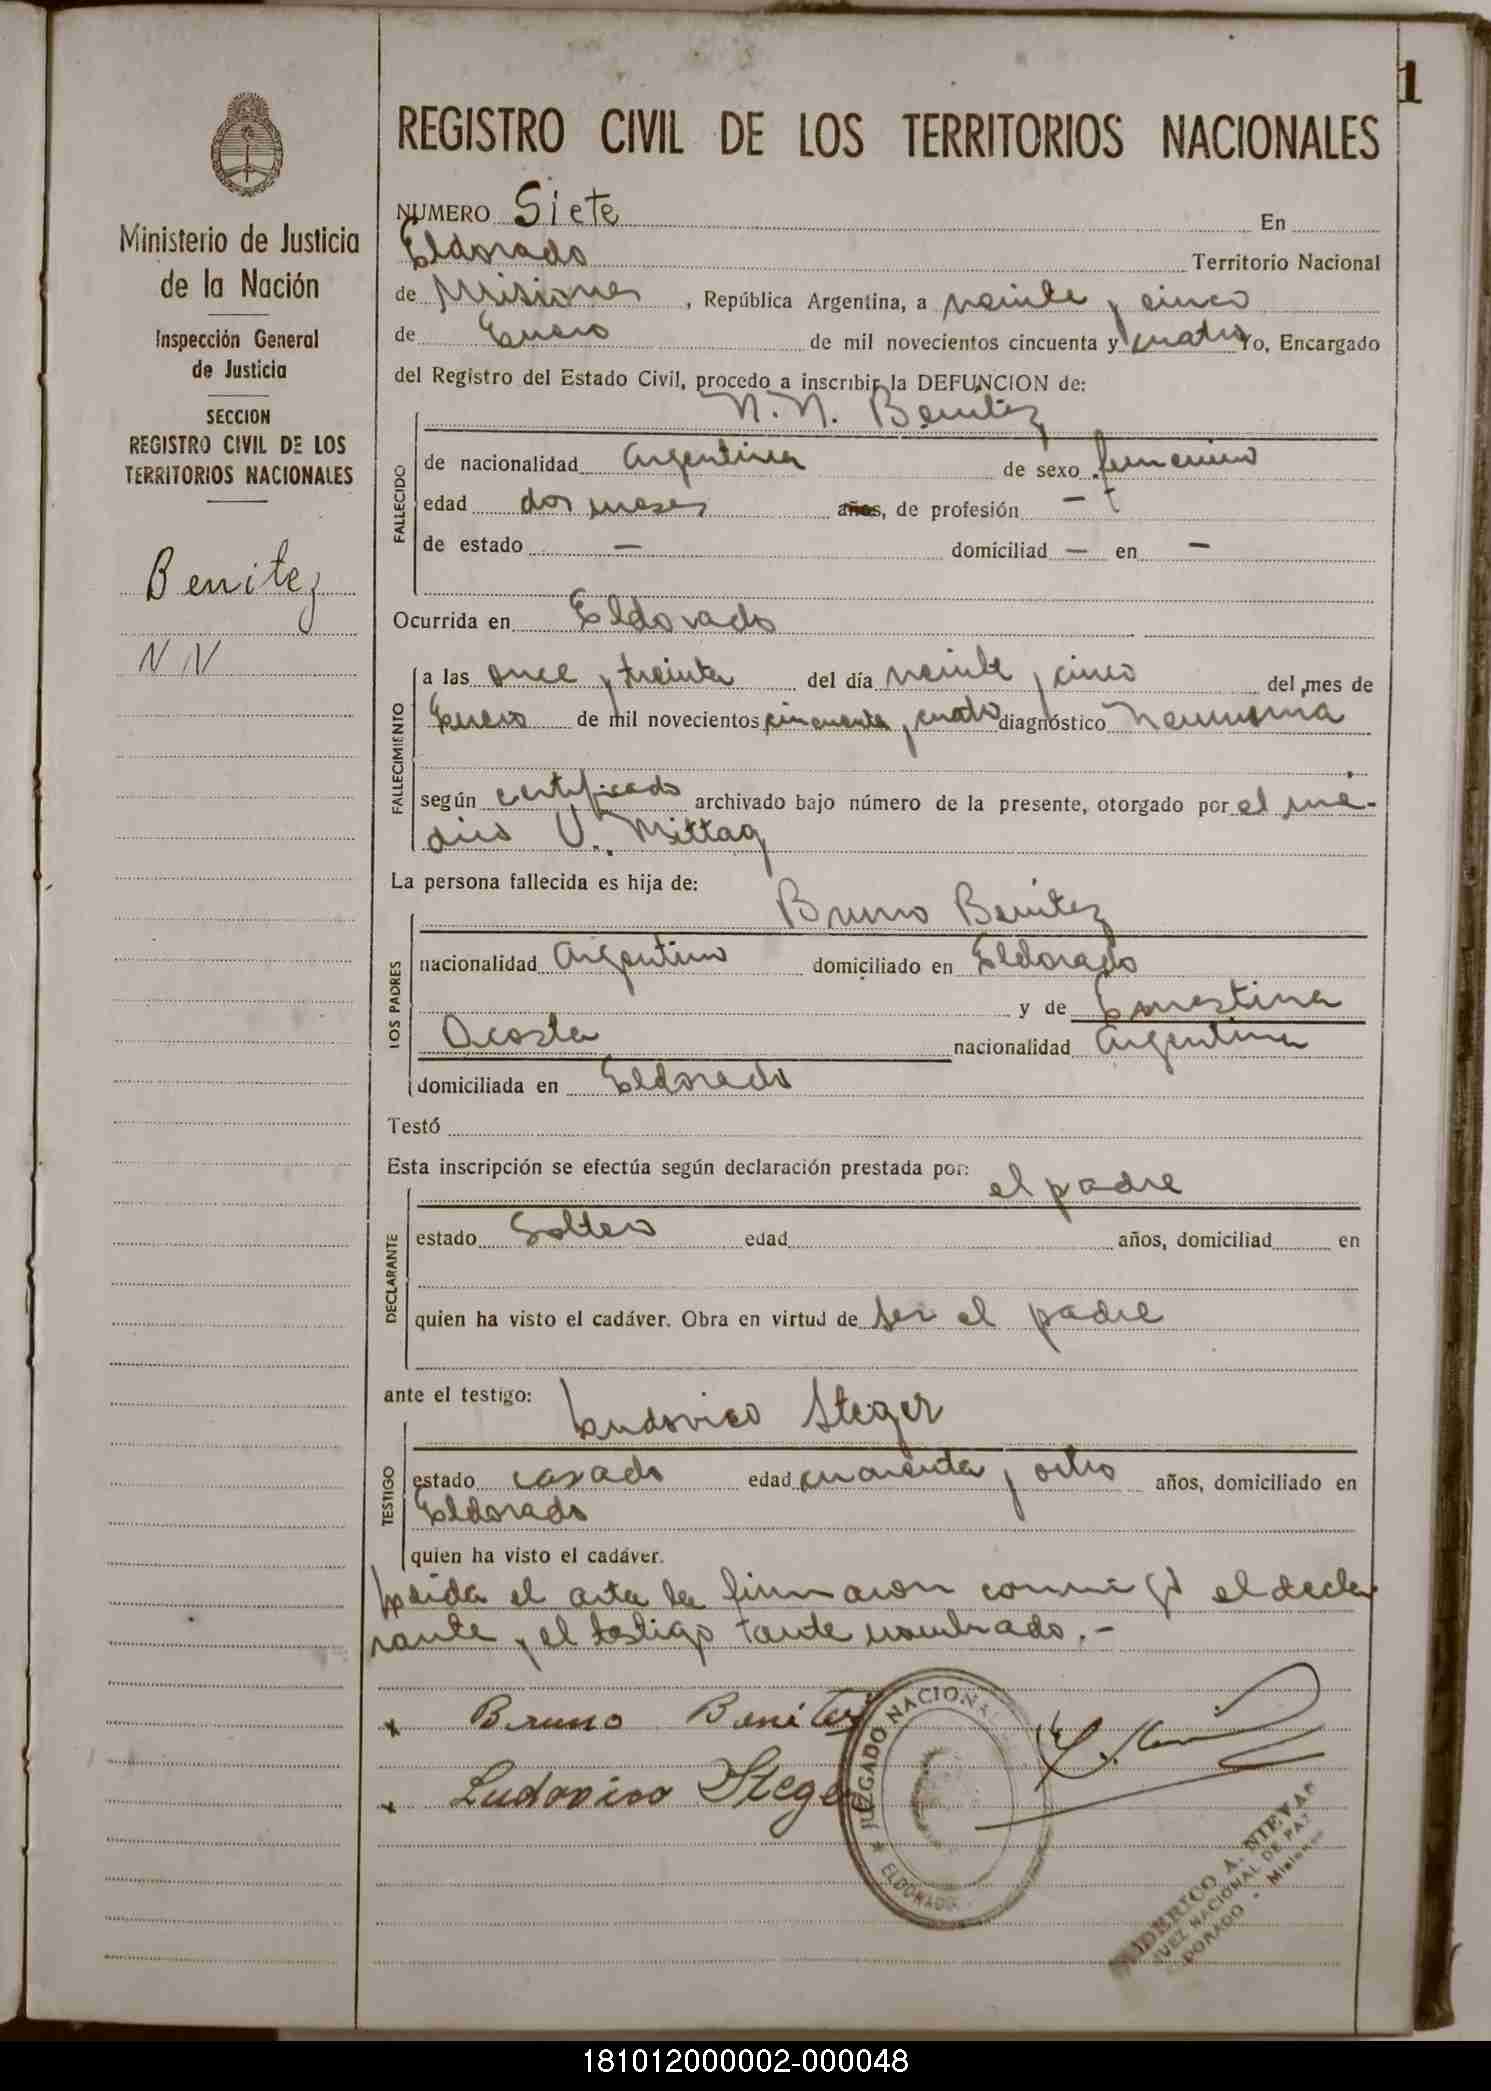 1
Ministerio de Justicia
de la Nación
Inspección General
de Justicia
SECCION
REGISTRO CIVIL DE LOS
TERRITORIOS NACIONALES
Benitez
N N
REGISTRO CIVIL DE LOS TERRITORIOS NACIONALES
NUMERO Siete En
Eldorado Territorio Nacional
de Misiones, República Argentina, a veinte y cinco
de Enero de mil novecientos cincuenta y cuatro Yo, Encargado
del Registro del Estado Civil, procedo a inscribir la DEFUNCION de:
N.N. Benitez
FALLECIDO
de nacionalidad Argentina de sexo femenino
edad dos meses años, de profesión —
de estado — domiciliad — en —
Ocurrida en Eldorado
FALLECIMIENTO
a las once y treinta del día veinte y cinco del mes de
Enero de mil novecientos cincuenta y cuatro diagnóstico Neumonia
según certificado archivado bajo número de la presente, otorgado por el mé-
dico V. Mittag
La persona fallecida es hija de:
Bruno Benitez
LOS PADRES
nacionalidad Argentino domiciliado en Eldorado
y de Ernestina
Acosta nacionalidad Argentina
domiciliada en Eldorado
Testó
Esta inscripción se efectúa según declaración prestada por:
el padre
DECLARANTE
estado Soltero edad años, domiciliad en
quien ha visto el cadáver. Obra en virtud de ser el padre
ante el testigo:
Ludovico Steger
TESTIGO
estado casado edad cuarenta y ocho años, domiciliado en
Eldorado
quien ha visto el cadáver.
Leida el acta la firmaron conmigo el decla
rante y el testigo nombrado.-
x Bruno Benitez
x Ludovico Steger
JUZGADO NACIONAL
ELDORADO
FEDERICO A. NIEVAS
JUEZ NACIONAL DE PAZ
ELDORADO - Misiones
181012000002-000048